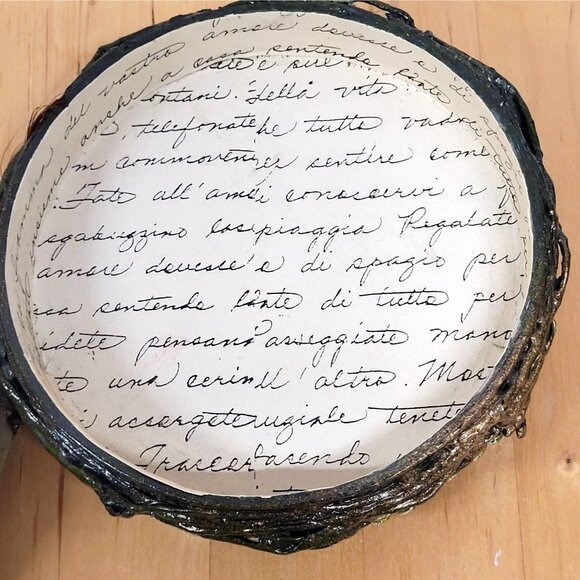 del vostro amore dovesse e di
anche a casa sentendo l'arte
ate e sul
ontani. Sella vita
telefonate he tutto vadi
m commoven er sentire come
. Fate all'ami conoscervi a f
sgabuzzino los piaggia Regalate
amore dovesse'o di spazio per
sa sentendo l'arte di tutto per
idete pensano asseggiate mano
te una cerim ll'altro. Mos
i accorgete uginle tenete
Traccer facendo